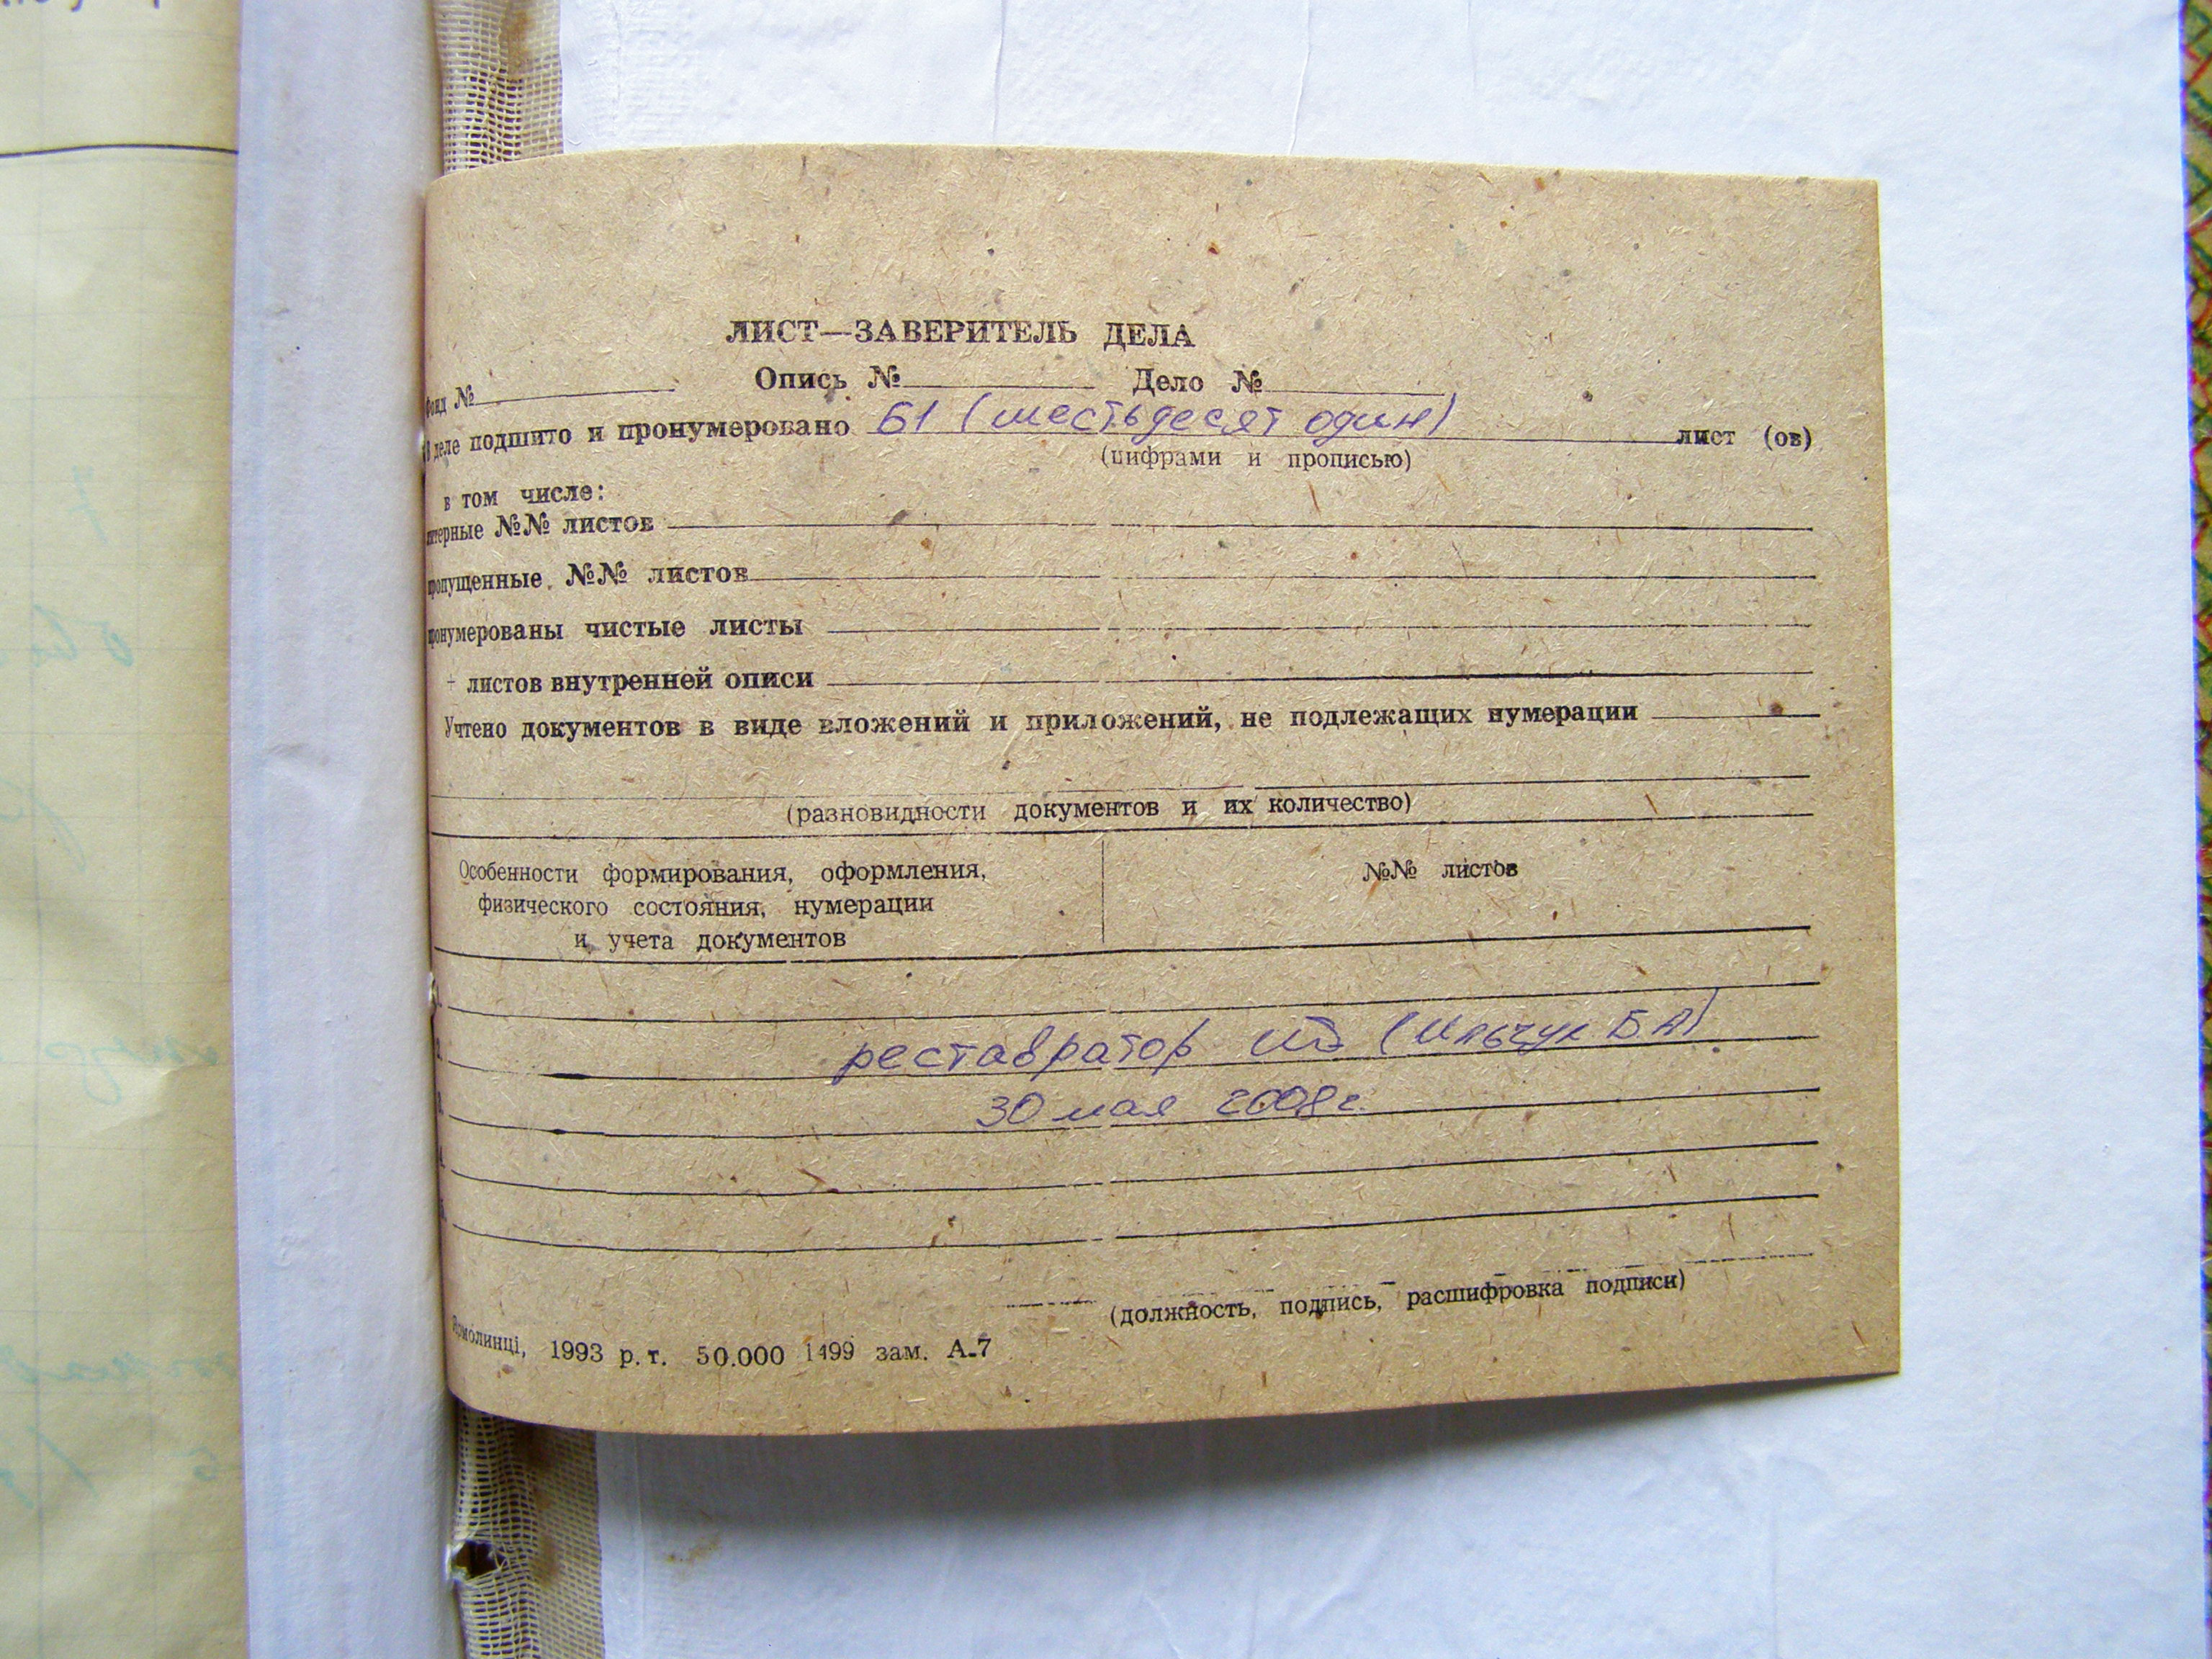 ЛИСТ—ЗАВЕРИТЕЛЬ ДЕЛА
Фонд № Опись № Дело №
В деле подшито и пронумеровано 61 (шестьдесят один) лист (ов)
(цифрами и прописью)
в том числе:
литерные №№ листов
пропущенные №№ листов
пронумерованы чистые листы
+ листов внутренней описи
Учтено документов в виде вложений и приложений, не подлежащих нумерации
(разновидности документов и их количество)
Особенности формирования, оформления, №№ листов
физического состояния, нумерации
и учета документов
1.
2. реставратор (Ильчук Б.А)
3. 30 мая 2008 г.
4.
5.
(должность, подпись, расшифровка подписи)
Ярмолинці, 1993 р. т. 50.000 1499 зам. А-7